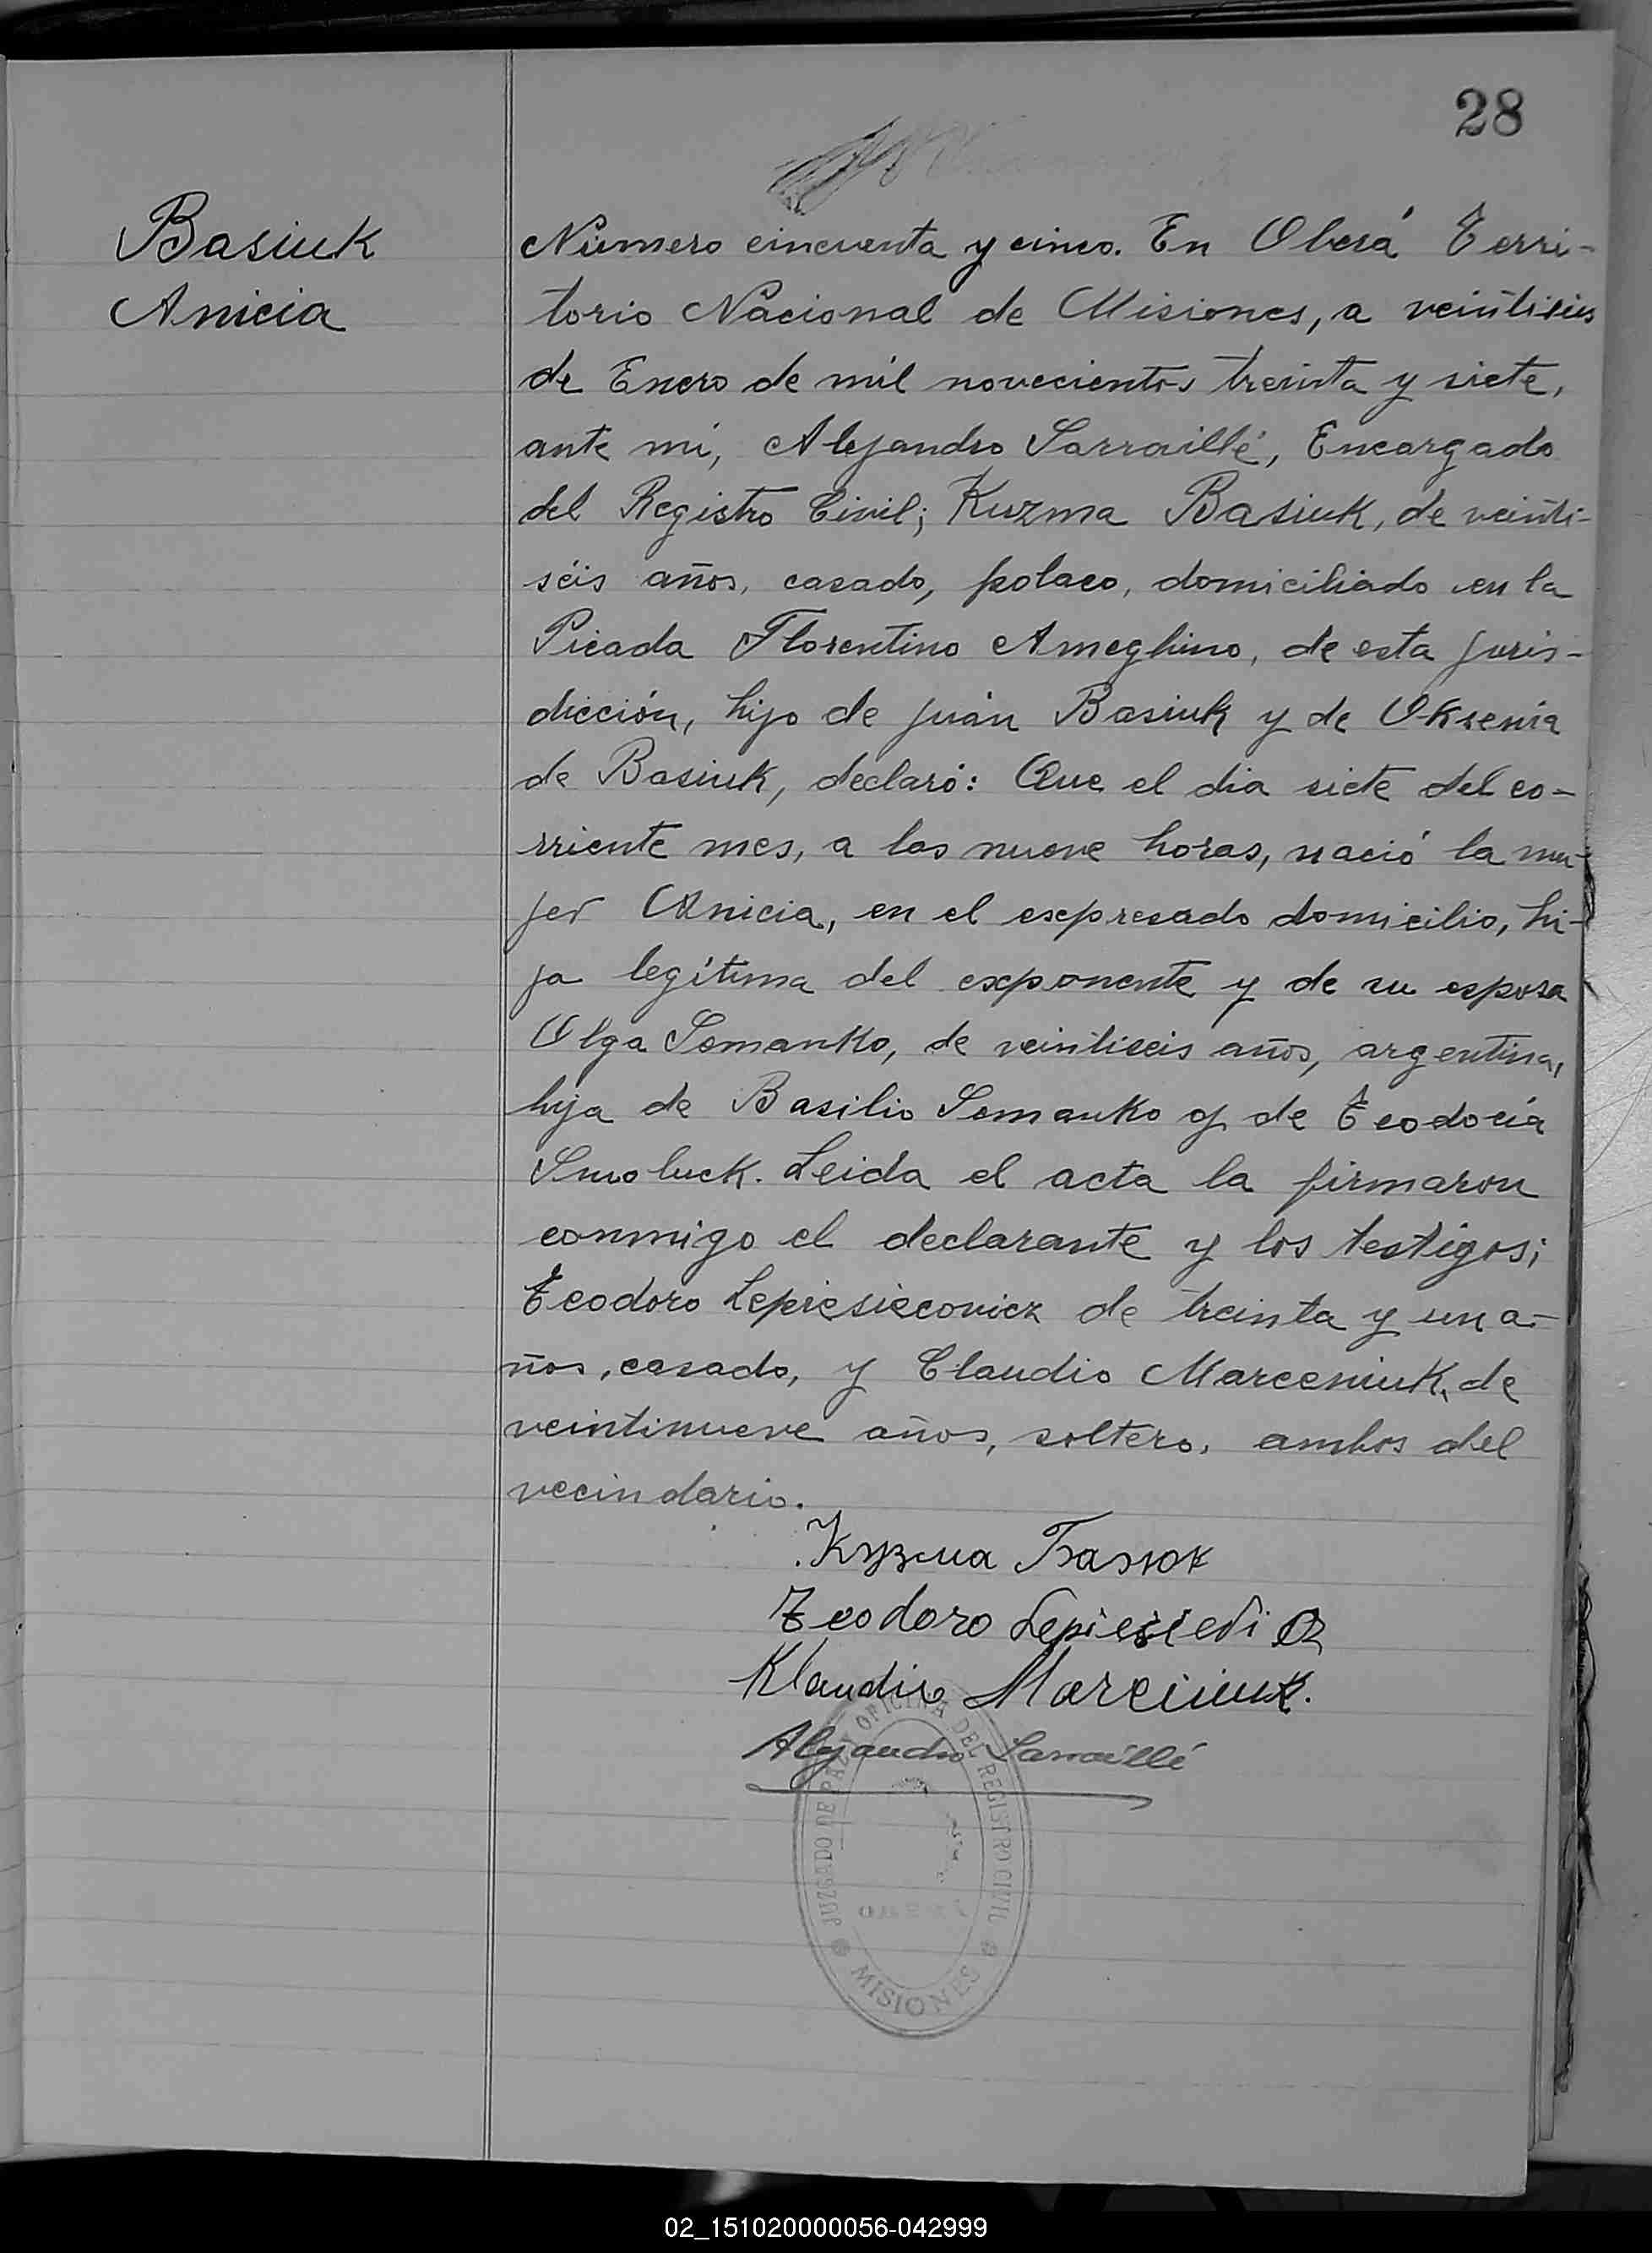 28
Basiuk
Anicia
Número cincuenta y cinco. En Oberá Terri-
torio Nacional de Misiones, a veintiseis
de Enero de mil novecientos treinta y siete,
ante mí, Alejandro Sarraillé, Encargado
del Registro Civil; Kuzma Basiuk, de veinti-
séis años, casado, polaco, domiciliado en la
Picada Florentino Ameghino, de esta juris-
dicción, hijo de Juan Basiuk y de Oksenia
de Basiuk, declaró: Que el dia siete del co-
rriente mes, a las nueve horas, nació la mu-
jer Anicia, en el expresado domicilio, hi-
ja legítima del exponente y de su esposa
Olga Semanko, de veintiseis años, argentina,
hija de Basilio Semanko y de Teodocia
Smoluck. Leida el acta la firmaron
conmigo el declarante y los testigos;
Teodoro Lepiesiecovicz de treinta y un a-
ños, casado, y Claudio Marceniuk, de
veintinueve años, soltero, ambos del
vecindario.
Кузма Базюк
Teodoro
Klaudio Marciniuk.
Alejandro Sarraillé
JUZGADO DE PAZ Y OFICINA DEL REGISTRO CIVIL
MISIONES
02_151020000056-042999